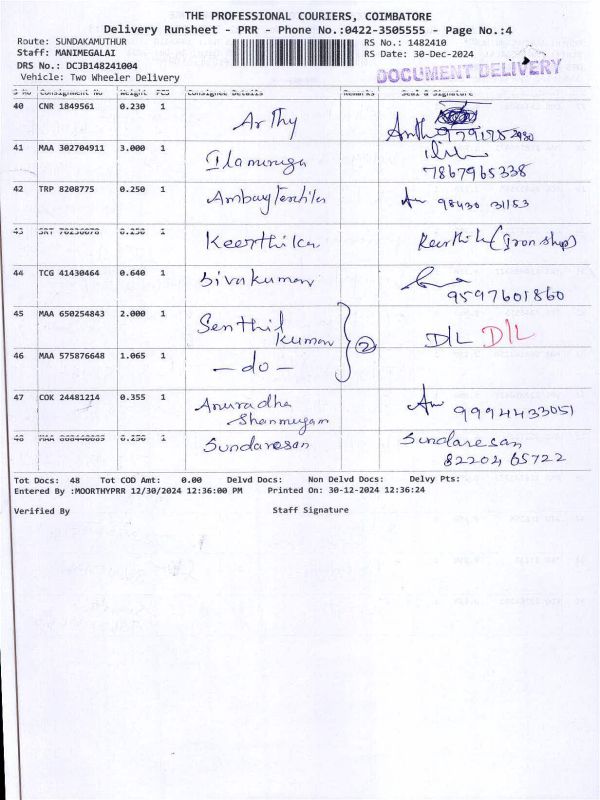 THE PROFESSIONAL COURIERS, COIMBATORE
Delivery Runsheet - PRR - Phone No.:0422-3505555 - Page No.:4
Route: SUNDAKAMUTHUR RS No.: 1482410
Staff: MANIMEGALAI RS Date: 30-Dec-2024
DRS No.: DCJB148241004
DOCUMENT DELIVERY
Vehicle: Two Wheeler Delivery
S No Consignment No Weight PCS Consignee Details Remarks Seal & Signature
40 CNR 1849561 0.230 1 Arthy
41 MAA 302704911 3.000 1
7867965338
42 TRP 8208775 0.250 1 98430 31153
43 1 Keerthika Keerthika (Iron shop)
44 TCG 41430464 0.640 1 Sivakumar
9597601860
45 MAA 650254843 2.000 1 Senthil
Kumar ② D/L D/L
46 MAA 575876648 1.065 1 — do —
47 COK 24481214 0.355 1 Anuradha
Shanmugam 9994433051
48 1 Sundaresan Sundaresan
82204 65722
Tot Docs: 48 Tot COD Amt: 0.00 Delvd Docs: Non Delvd Docs: Delvy Pts:
Entered By :MOORTHYPRR 12/30/2024 12:36:00 PM Printed On: 30-12-2024 12:36:24
Verified By Staff Signature